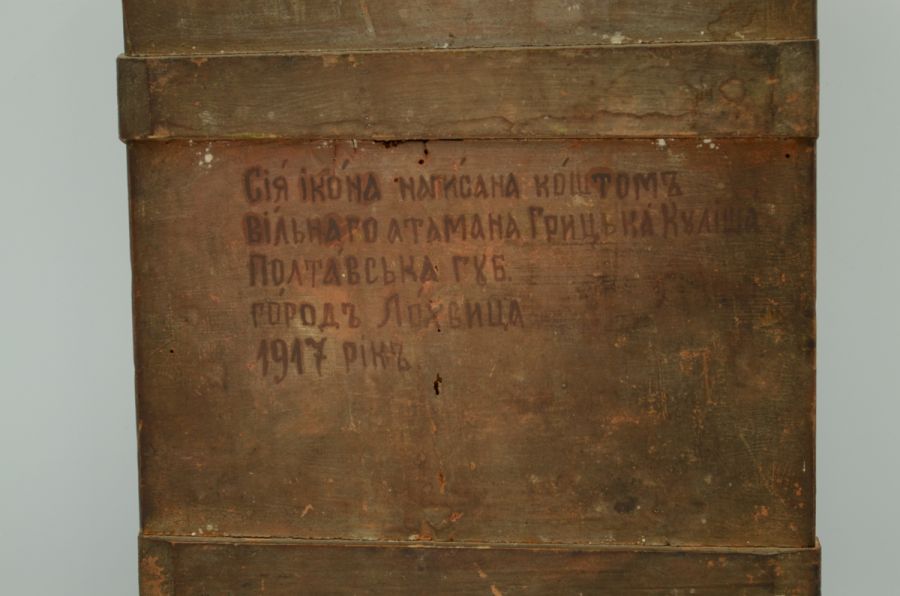 Сія́ іко́на напи́сана ко́штомъ
ві́льнаго атама́на Гриць́ка́ Кулі́ша́
Полта́вська губ.
го́родъ Ло́хвица
1917 рікъ.